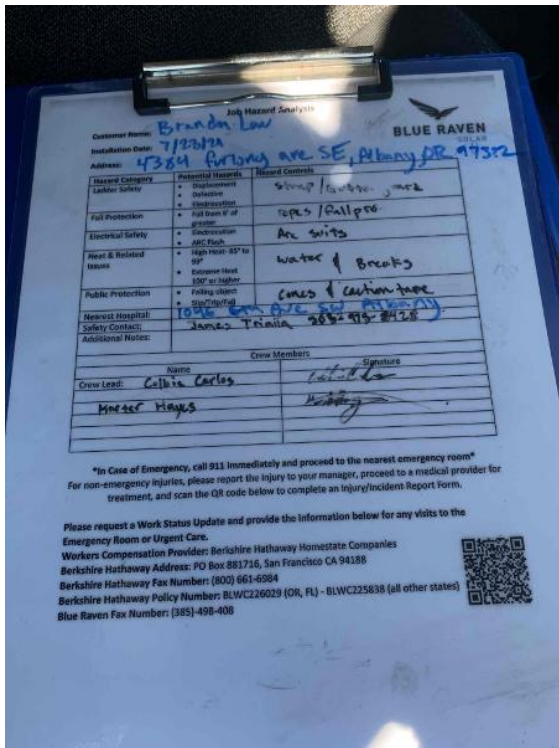 Job Hazard Analysis
BLUE RAVEN
SOLAR
Customer Name: Brandon Law
Installation Date: 7/23/21
Address: 4384 Furlong ave SE, Albany, OR 97322
Hazard Category Potential Hazards Hazard Controls
Ladder Safety
• Displacement
• Defective
• Electrocution
strap /
Fall Protection
• Fall from 6' of
greater
ropes / fall pro.
Electrical Safety
• Electrocution
• ARC Flash
Arc suits
Heat & Related
Issues
• High Heat- 85° to
99°
• Extreme Heat
100° or higher
water & Breaks
Public Protection
• Falling object
• Slip/Trip/Fall
cones & caution tape
Nearest Hospital: 1046 6th Ave SW Albany.
Safety Contact: James
Additional Notes:
Crew Members
Name Signature
Crew Lead: Carlos
Hayes
*In Case of Emergency, call 911 immediately and proceed to the nearest emergency room*
For non-emergency injuries, please report the injury to your manager, proceed to a medical provider for
treatment, and scan the QR code below to complete an Injury/Incident Report Form.
Please request a Work Status Update and provide the information below for any visits to the
Emergency Room or Urgent Care.
Workers Compensation Provider: Berkshire Hathaway Homestate Companies
Berkshire Hathaway Address: PO Box 881716, San Francisco CA 94188
Berkshire Hathaway Fax Number: (800) 661-6984
Berkshire Hathaway Policy Number: BLWC226029 (OR, FL) - BLWC225838 (all other states)
Blue Raven Fax Number: (385)-498-408